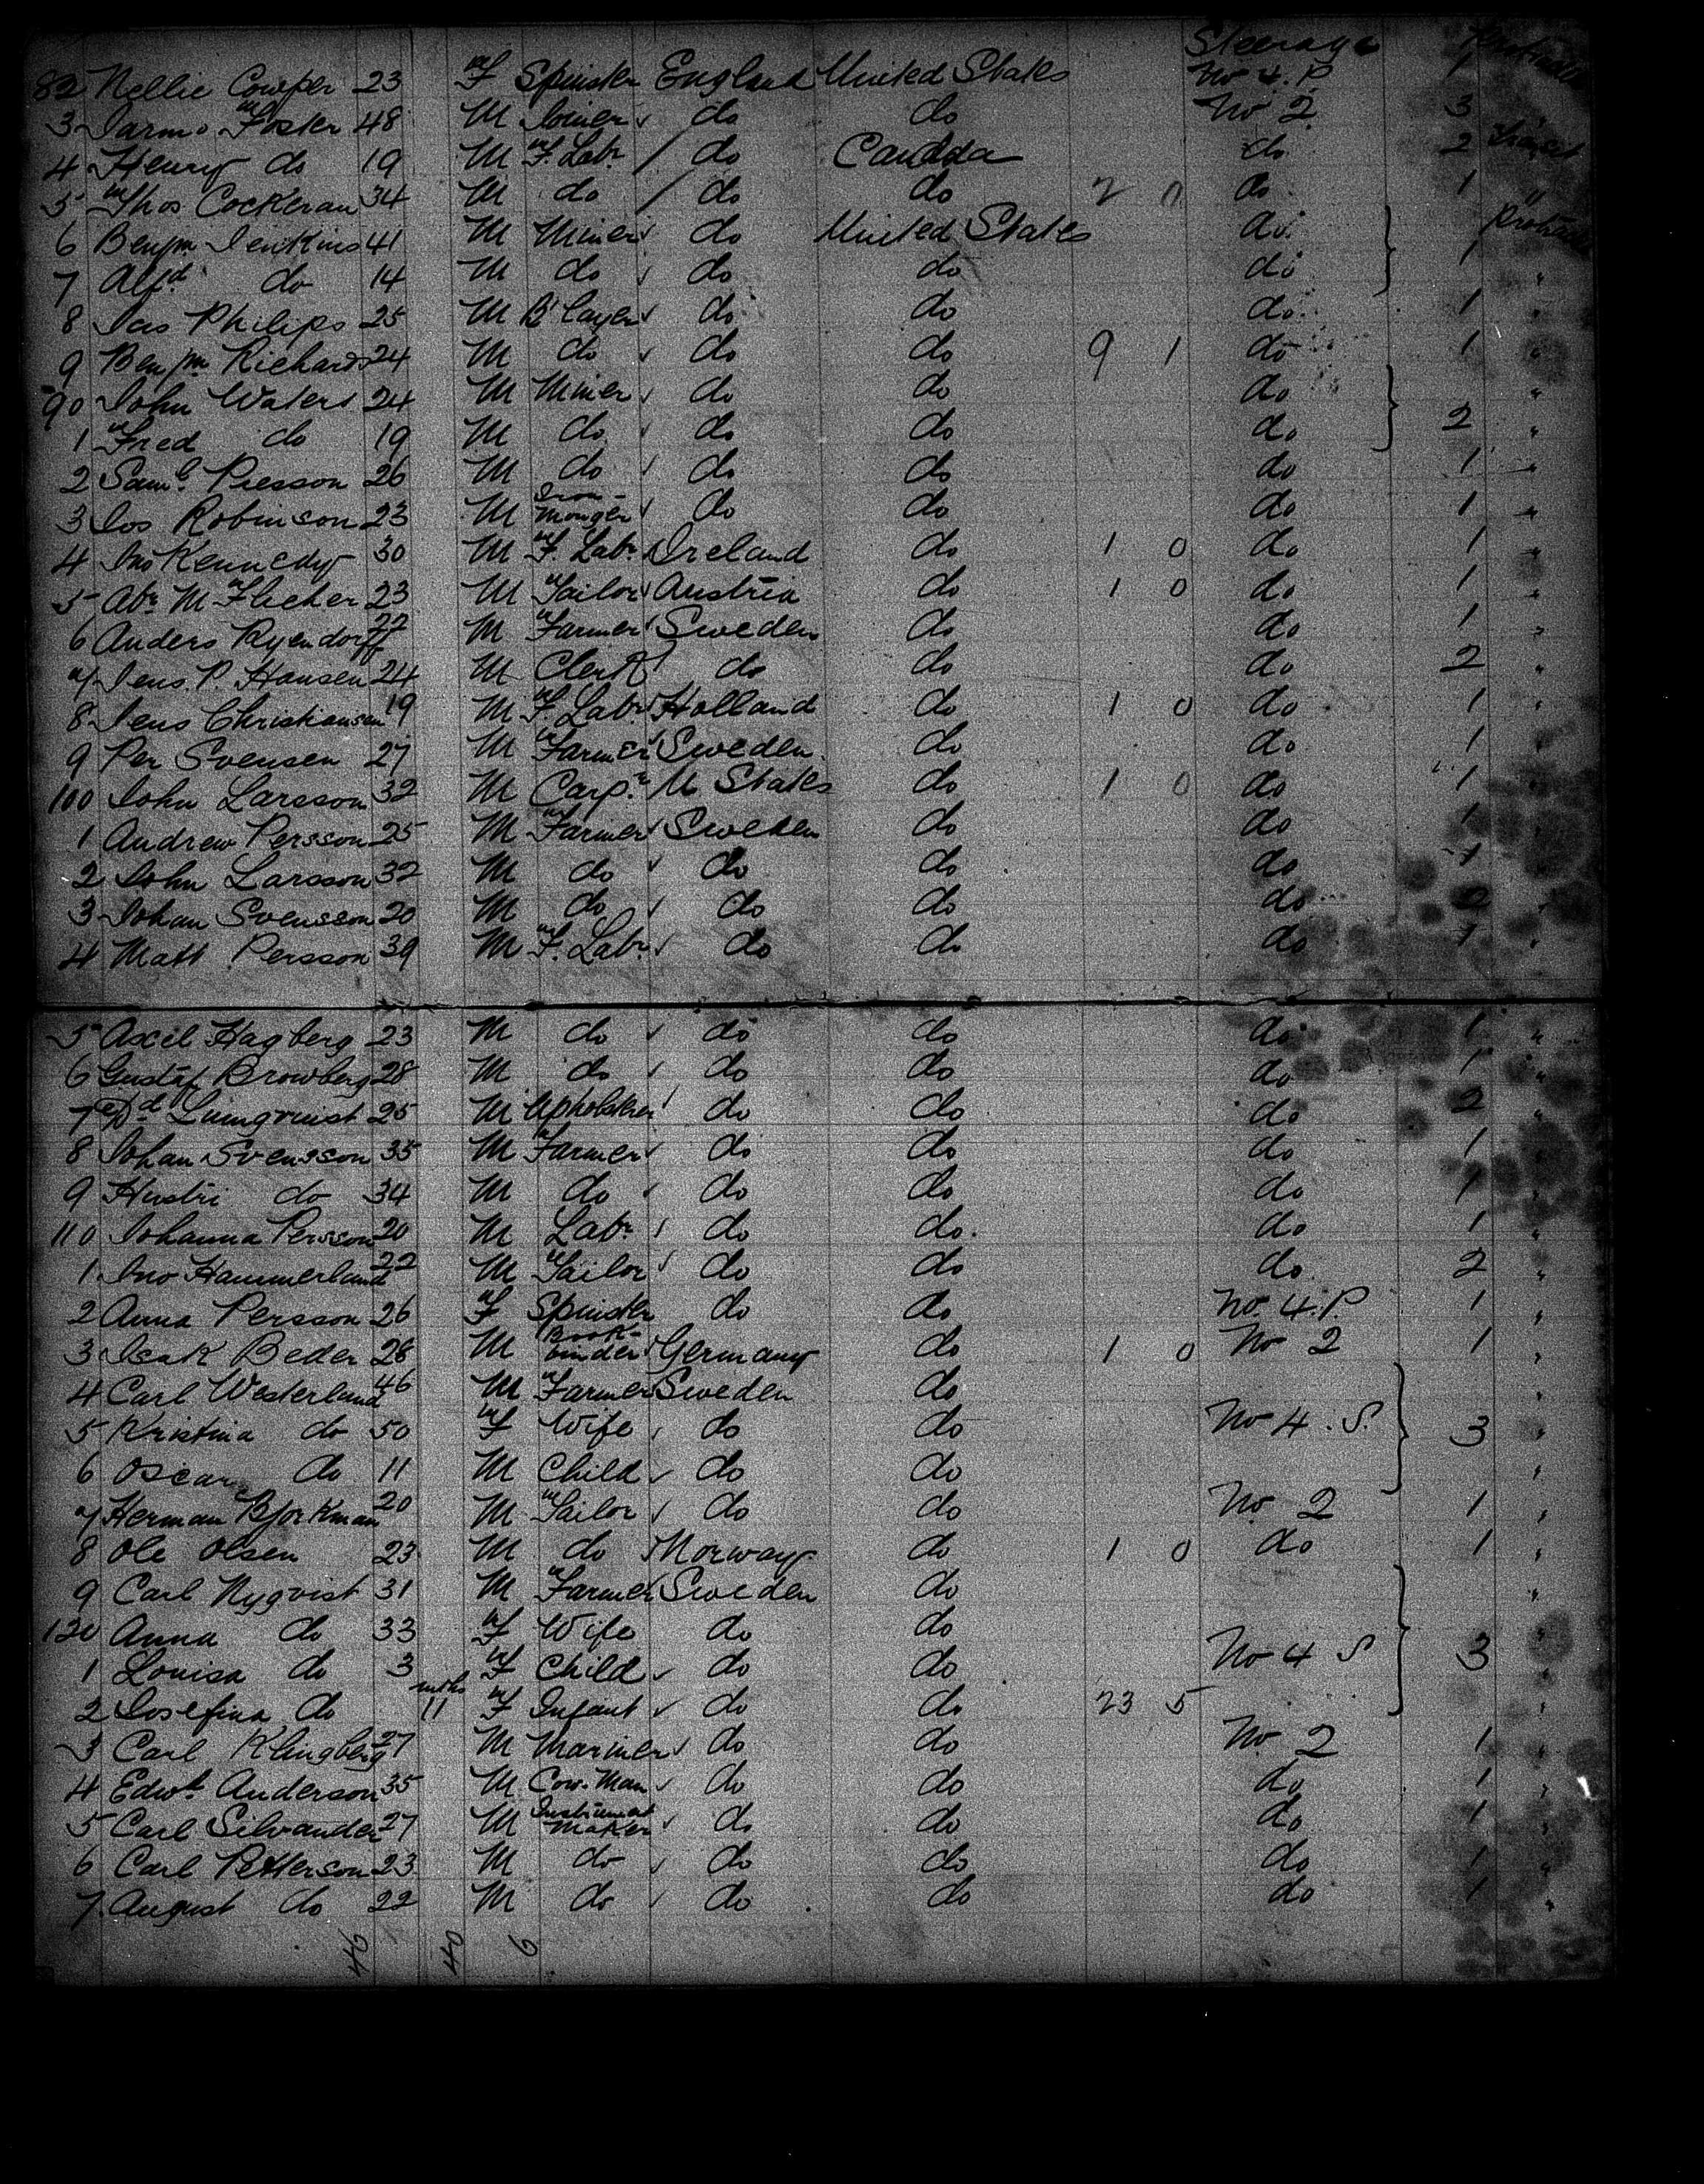 Steerage
82 Nellie Cowper 23 F Spinster England United States No 4. P. 1
3 Foster 48 M Joiner do do No 2 3
4 Henry do 19 M F. Labr do Canada do 2 Transit
5 Thos Cockeran 34 M do do do 2 0 do 1 "
6 Benjn Jenkins 41 M Miner do United States do
7 Alfd do 14 M do do do do 1 "
8 Jas Philips 25 M B'layer do do do 1
9 Benjn Richards 24 M do do do 9 1 do 1 "
90 John Waters 24 M Miner do do do "
1 Fred do 19 M do do do do 2 "
2 Saml Presson 26 M do do do do 1 "
3 Jos Robinson 23 M Iron-monger do do do 1 "
4 Jno Kennedy 30 M F. Labr Ireland do 1 0 do 1 "
5 Abr M Flecher 23 M Tailor Austria do 1 0 do 1 "
6 Anders Ryendorff 22 M Farmer Sweden do do 1 "
7 Jens. P. Hansen 24 M Clerk do do do 2 "
8 Jens Christiansen 19 M F. Labr Holland do 1 0 do 1 "
9 Per Svensen 27 M Farmer Sweden do do 1 "
100 John Larsson 32 M Carpr U. States do 1 0 do 1 "
1 Andrew Persson 25 M Farmer Sweden do do 1 "
2 John Larsson 32 M do do do do 1 "
3 Johan Svensson 20 M do do do do "
4 Matt Persson 39 M F. Labr do do do 1 "
5 Axel Hagberg 23 M do do do do 1 "
6 Gustaf Browberg 28 M do do do do 1 "
7 Lumqvuist 25 M Upholsterer do do do 2 "
8 Johan Svensson 35 M Farmer do do do 1 "
9 Hustri do 34 M do do do do 1 "
110 Johanna Persson 20 M Labr do do do 1 "
1 Jno Hammerland 22 M Tailor do do do 2 "
2 Anna Persson 26 F Spinster do do No. 4. P. 1 "
3 Isak Beder 28 M Book-binder Germany do 1 0 No 2 1 "
4 Carl Westerland 46 M Farmer Sweden do "
5 Kristina do 50 F Wife do do No 4. S. 3 "
6 Oscar do 11 M Child do do "
7 Herman Bjorkman 20 M Tailor do do No. 2 1 "
8 Ole Olsen 23 M do Norway do 1 0 do 1 "
9 Carl Nyqvist 31 M Farmer Sweden do "
120 Anna do 33 F Wife do do "
1 Louisa do 3 F Child do do No 4 S 3 "
2 Josefina do mths 11 F Infant do do 23 5 "
3 Carl Klingberg 27 M Mariner do do No. 2 1 "
4 Edwd Anderson 35 M Cow-Man do do do 1 "
5 Carl Silvander 27 M Instrument Maker do do do 1 "
6 Carl Petterson 23 M do do do do 1 "
7 August do 22 M do do do do 1 "
46 40 6